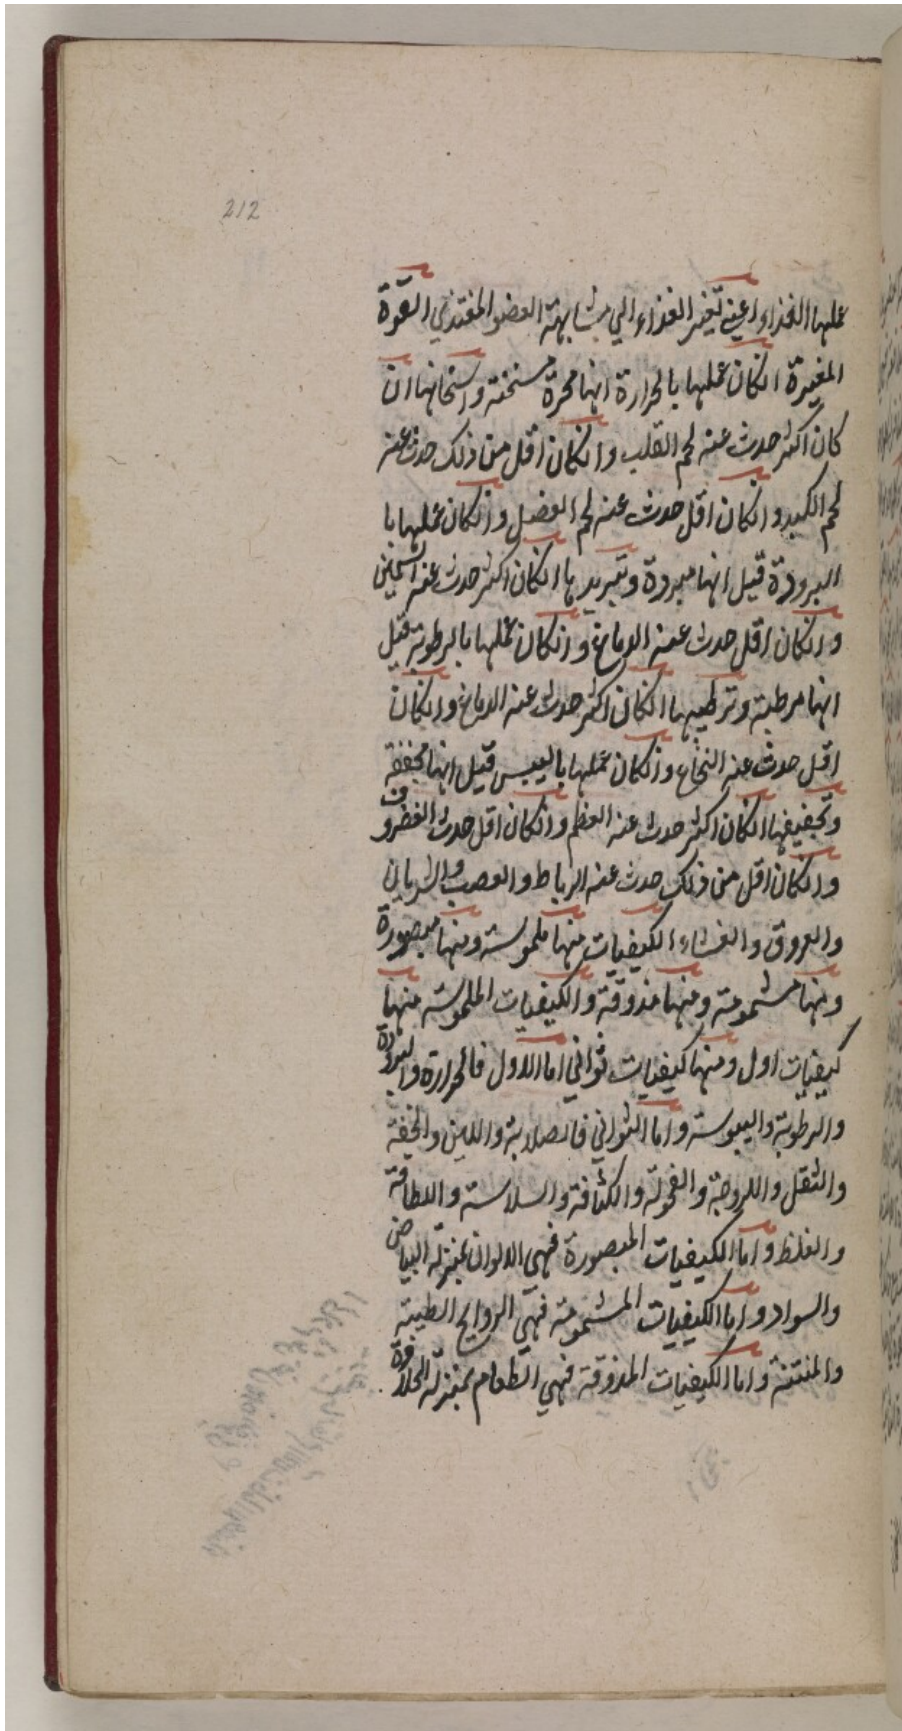 212
عملها الغذاء اعني تغير الغذاء الي مشابهة العضو المغتذي القوة
المغيرة انكان عملها بالحرارة انها محرة مسخنة واسخانها ان
كان اكثر حدث عنه لحم القلب وانكان اقل من ذلك حدث عنه
لحم الكبد وانكان اقل حدث عنه لحم العضل وانكان عملها با
البرودة قيل انها مبردة وتبريدها انكان اكثر حدث عنه الشحمين
وانكان اقل حدث عنه الدماغ وانكان عملها بالرطوبة قيل
انها مرطبة وترطيبها انكان اكثر حدث عنه الدماغ وانكان
اقل حدث عنه النخاع وانكان عملها باليبس قيل انها مجففة
وتجفيفها انكان اكثر حدث عنه العظم وانكان اقل حدث الغضروف
وانكان اقل من ذلك حدث عنه الرباط والعصب والشريان
والعروق والغشاء الكيفيات منها ملموسة ومنها مبصورة
ومنها مشمومة ومنها مذوقة والكيفيات الملموسة منها
كيفيات اول ومنها كيفيات ثواني اما الاول فالحرارة والبرودة
والرطوبة واليبوسة واما الثواني فالصلابة واللين والخفة
والثقل واللزوجة والقحولة والكثافة والسلاسة واللطافة
والغلظ واما الكيفيات المبصورة فهي الالوان بمنزلة البياض
والسواد واما الكيفيات المشمومة فهي الروايح الطيبة
والمنتنة واما الكيفيات المذوقة فهي الطعام بمنزلة الحلاوة